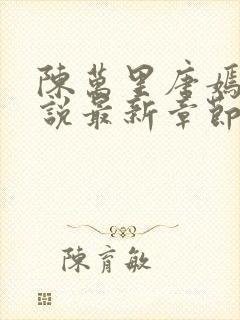 陳萬里唐嫣
說最新章節
陳育敏